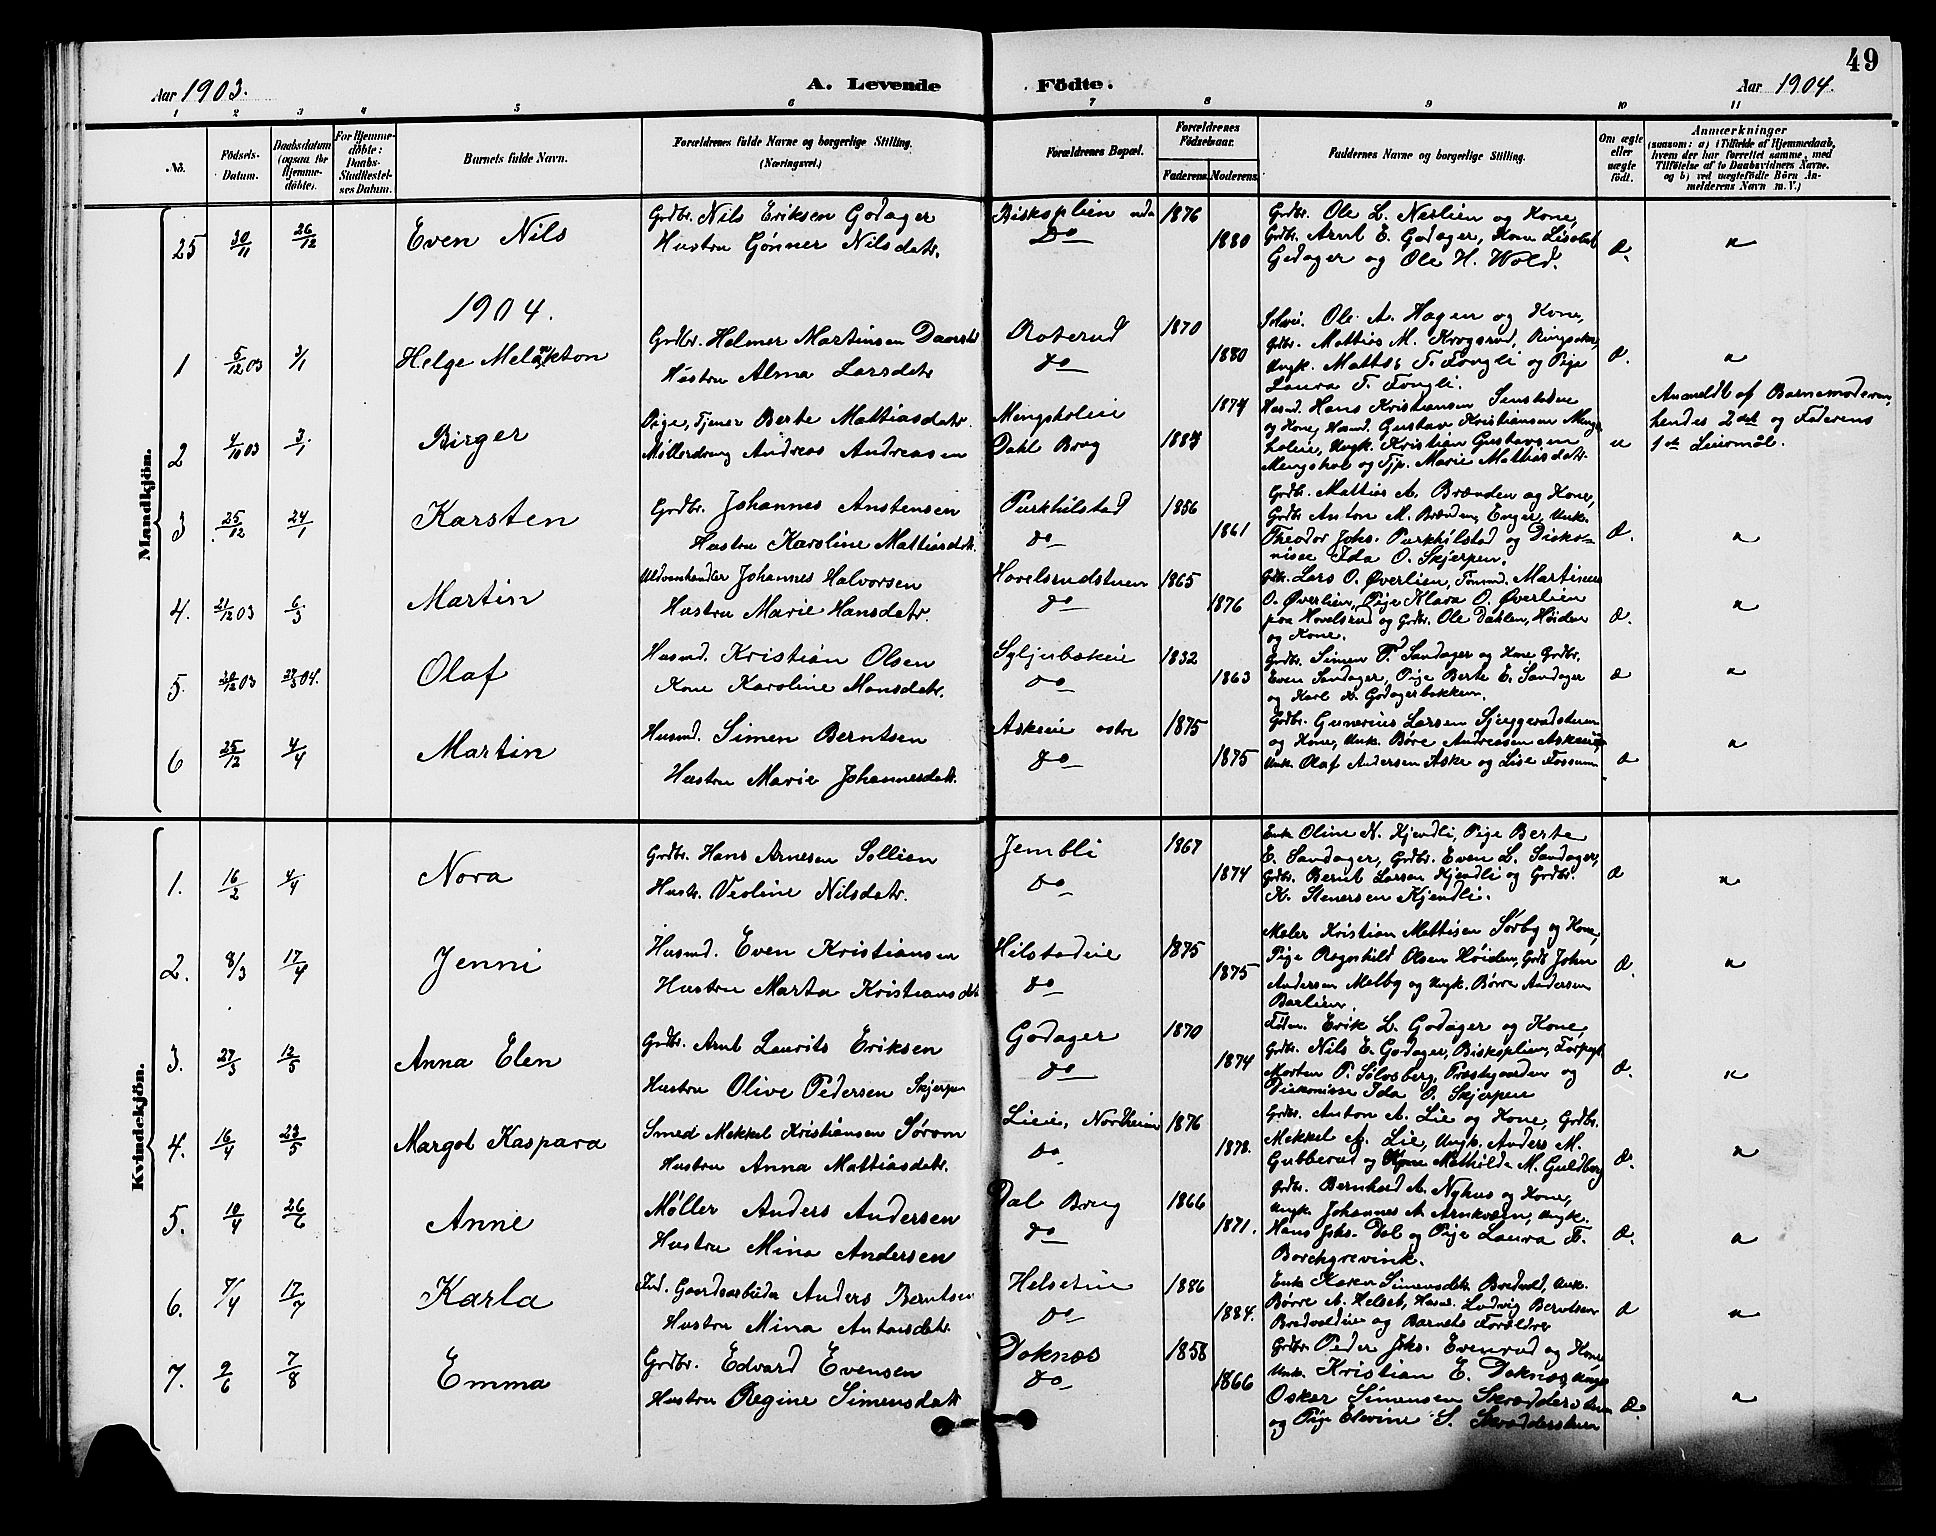 49
Aar 1903. A. Levende Födte. Aar 1904.
1 2 3 4 5 6 7 8 9 10 11
No. Födsels-Datum. Daabsdatum (ogsaa for Hjemmedöbte). For Hjemmedöbte: Daabs-Stadfæstelses Datum. Barnets fulde Navn. Forældrenes fulde Navne og borgerlige Stilling. (Næringsvei.) Forældrenes Bopæl. Forældrenes Födselsaar. Faderens. Moderens. Faddernes Navne og borgerlige Stilling. Om ægte eller uægte födt. Anmærkninger (saasom: a) i Tilfælde af Hjemmedaab, hvem der har forrettet samme, med Tilföielse af to Daabsvidners Navne. og b) ved uægtefödte Börn Anmelderens Navn m. V.)
Mandkjön.
25 30/11 26/12 Even Nils
Grdbr. Nils Eriksen Godager
Hustru Gønner Nilsdatr.
Biskoplien
Do
1876
1880
Grdbr. Ole L. Nerlien og Kone,
Grdbr. Arnt E. Godager, Kone Lisebet
Godager og Ole H. Wold.
1904.
1 5/12 03 3/1 Helge Melankton
Grdbr. Helmer Martinsen
Hustru Alma Larsdatr
Roterud
do
1870
1880
Ole A. Hagen og Kone,
Grdbr. Mattias M. Krogsrud,
Ungk. Matts T. Fongli og Pige
Laura T. Fongli.
2 4/10 03 3/1 Birger
Pige, Tjener Berte Mattiasdatr.
Møllerdreng Andreas Andreasen
Mengsholeie
Dahl Brug
1874
1884
Husmd. Hans Kristiansen
og Kone, Husmd. Gustav Kristiansen
Ungk. Kristian Gustavsen
Mengshol og Tjp. Marie Mattiasdatr.
u
Anmeldt af Barnemoderen,
hendes 2det og Faderens
1ste Leiermål.
3 25/12 24/1 Karsten
Grdbr. Johannes Anstensen
Hustru Karoline Mattiasdatr.
Purkhilstad
do
1856
1861
Grdbr. Mattias A. Brænden og Kone,
Grdbr Anton M. Brænden, Enger, Unk.
Theodor Johs. Purkhilstad og Diako-
nisse Ida O. Skjerpen.
4. 21/12 03 6/3 Martin
Uldvarehandler Johannes Halvorsen
Hustru Marie Hansdatr.
Hovelsrudstuen
do
1865
1876
Grdbr. Lars O. Øverlien, Martinus
O. Øverlien, Pige Klara O. Øverlien
paa Hovelsrud og Grdbr. Ole Dahlen, Høiden
og Kone.
5. 30/12 03 27/3 04. Olaf
Husmd. Kristian Olsen
Kone Karoline Monsdatr.
Syljubækeie
do
1832
1863
Grdbr. Simen P. Sandager og Kone Grdbr.
Even Sandager, Pige Berte E. Sandager
og Karl Godagerbakken.
6 25/12 4/4 Martin
Husmd. Simen Berntsen
Hustru Marie Johannesdatr.
Askeeie østre
do
1875
1875
Grdbr. Gunerius Larsen
og Kone, Unk. Børe Andreasen Askeeie
Unk. Olaf Andersen Aske og Lise Fossum
Kvindekjön.
1. 16/2 4/4 Nora
Grdbr. Hans Arnesen Sollien
Hustr. Veoline Nilsdatr.
Jembli
do
1867
1874
Enke Oline N. Kjendli, Pige Berte
E. Sandager, Grdbr. Even L. Sandager,
Grdbr. Bernt Larsen Kjendli og Grdbr.
K. Stenersen Kjendli.
2. 8/3 17/4 Jenni
Husmd. Even Kristiansen
Hustru Marta Kristiansdtr
Hilstadeie
do
1875
1875
Maler Kristian Mattisen Sørby og Kone,
Pige Ragnhild Olsen Høiden, Grdb John
Andersen Melby og Ungk. Børre Andersen
Barlien.
3. 27/3 12/5 Anna Elen
Grdbr. Arnt Laurits Eriksen
Hustru Olive Pedersen Skjerpen
Godager
do
1870
1874
Erik L. Godager og Kone,
Grdbr. Nils E. Godager, Biskoplien, Forpagt.
Morten P. Sølvsberg, Præstegaarden og
Diakonisse Ida O. Skjerpen
4. 16/4 23/5 Margot Kaspara
Smed Mekkel Kristiansen Sørom
Hustru Anna Mattiasdatr.
Lieie, Nordheim
do
1876
1878.
Grdbr. Anton A. Lie og Kone, Grdbr.
Mekkel A. Lie, Ungk. Anders M.
Gubberud og Mathilde M. Guldberg
5. 10/4 26/6 Anne
Møller Anders Andersen
Hustru Mina Andersen
Dal Brug
do
1866
1871.
Grdbr. Bernhard A. Nyhus og Kone,
Ungk. Johannes A. Arnkværn, Ungk.
Hans Johs. Dal og Pige Laura F.
Borchgrevink.
6. 7/4 17/7 Karla
Ind. Gaardsarbeider Anders Berntsen
Hustru Mina Antonsdatr.
Helseteie
do
1886
1884.
Enke Karen Simensdatr. Bredvold, Unk.
Børre A. Helset, Husmd. Ludvig Berntsen
Bredvoldeie og Barnets Forældre
7. 9/6 7/8 Emma
Grdbr. Edvard Evensen
Hustru Regine Simensdatr
Doknæs
do
1858
1866
Grdbr. Peder Johs. Evenrud og Kone
Unk. Kristian E. Doknæs, Ungk.
Oskar Simensen Skrædderstuen
og Pige Elevine S. Skrædderstuen